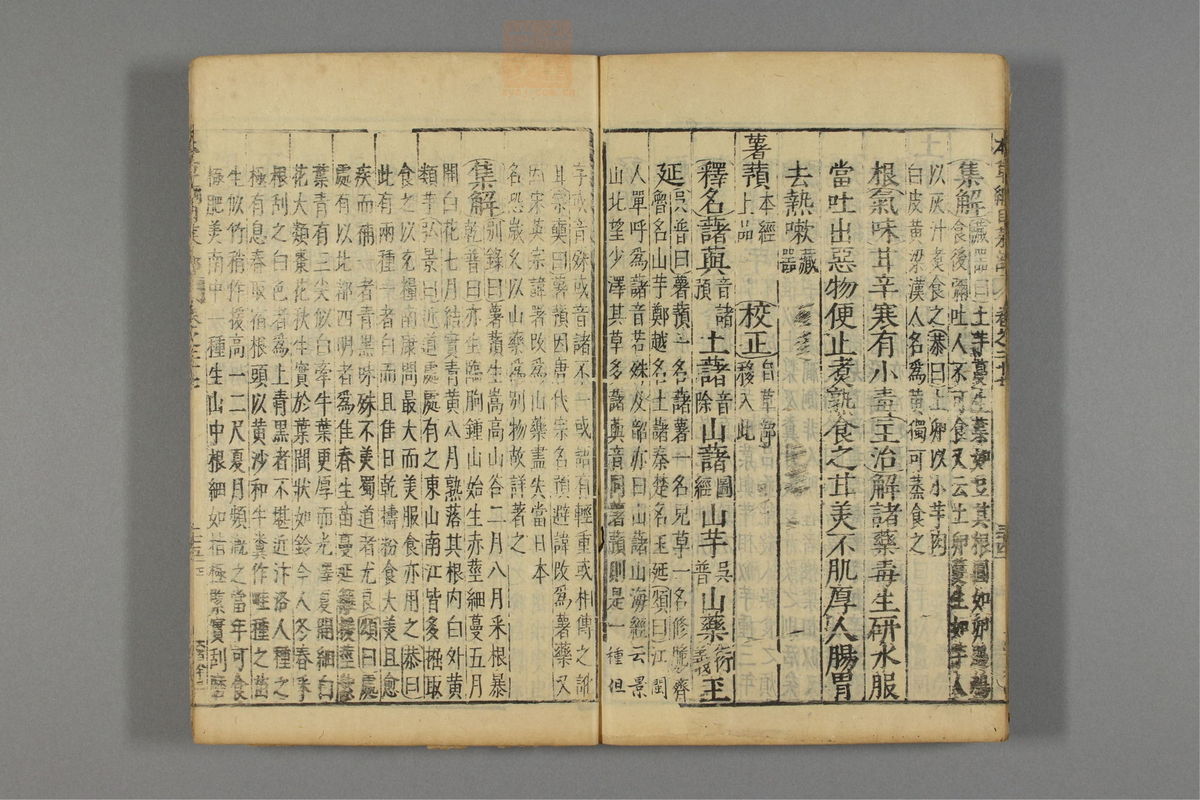 集解藏器曰土芋蔓生葉如豆其根圓如卵鵝鴨
食後彌吐人不可食又云土卵蔓生如芋人
以灰汁煮食之恭曰土卵以小芋肉
白皮黃梁漢人名爲黃獨可蒸食之
根氣味甘辛寒有小毒主治解諸藥毒生研水服
當吐出惡物便止煮熟食之甘美不肌厚人腸胃
去熱嗽藏器
薯蕷本經上品 校正自草部移入此
釋名藷藇音諸預土藷音除山藷圖經山芋吳普山藥衍義玉
延吳普曰薯蕷一名藷薯一名兒草一名修脆齊
魯名山芋鄭越名土藷秦楚名玉延頌曰江閩
人單呼爲藷音若殊及韶亦曰山藷山海經云景
山北望少澤其草多藷藇音同薯蕷則是一種但
字或音殊或音諸不一或語有輕重或相傳之訛
耳宗奭曰薯蕷因唐代宗名預避諱改爲薯藥又
因宋英宗諱署改爲山藥盡失當日本
名恐歲久以山藥爲別物故詳著之
集解別錄曰薯蕷生嵩高山谷二月八月采根暴
乾普曰亦生臨朐鍾山始生赤莖細蔓五月
開白花七月結實青黃八月熟落其根內白外黃
類芋弘景曰近道處處有之東山南江皆多掘取
食之以充糧南康間最大而美服食亦用之恭曰
此有兩種一者白而且佳日乾擣粉食大美且愈
疾而補一者青黑味殊不美蜀道者尤良頌曰處
處有以北都四明者爲佳春生苗蔓延籬援莖
葉青有三尖似白牽牛葉更厚而光澤夏開細白
花大類棗花秋生實於葉間狀如鈴今人冬春采
根刮之白色者爲上青黑者不堪近汴洛人種之
極有息春取宿根頭以黃沙和牛糞作畦種之苗
生以竹稍作援高一二尺夏月頻漑之當年可食
極肥美南中一種生山中根細如指極緊實刮磨